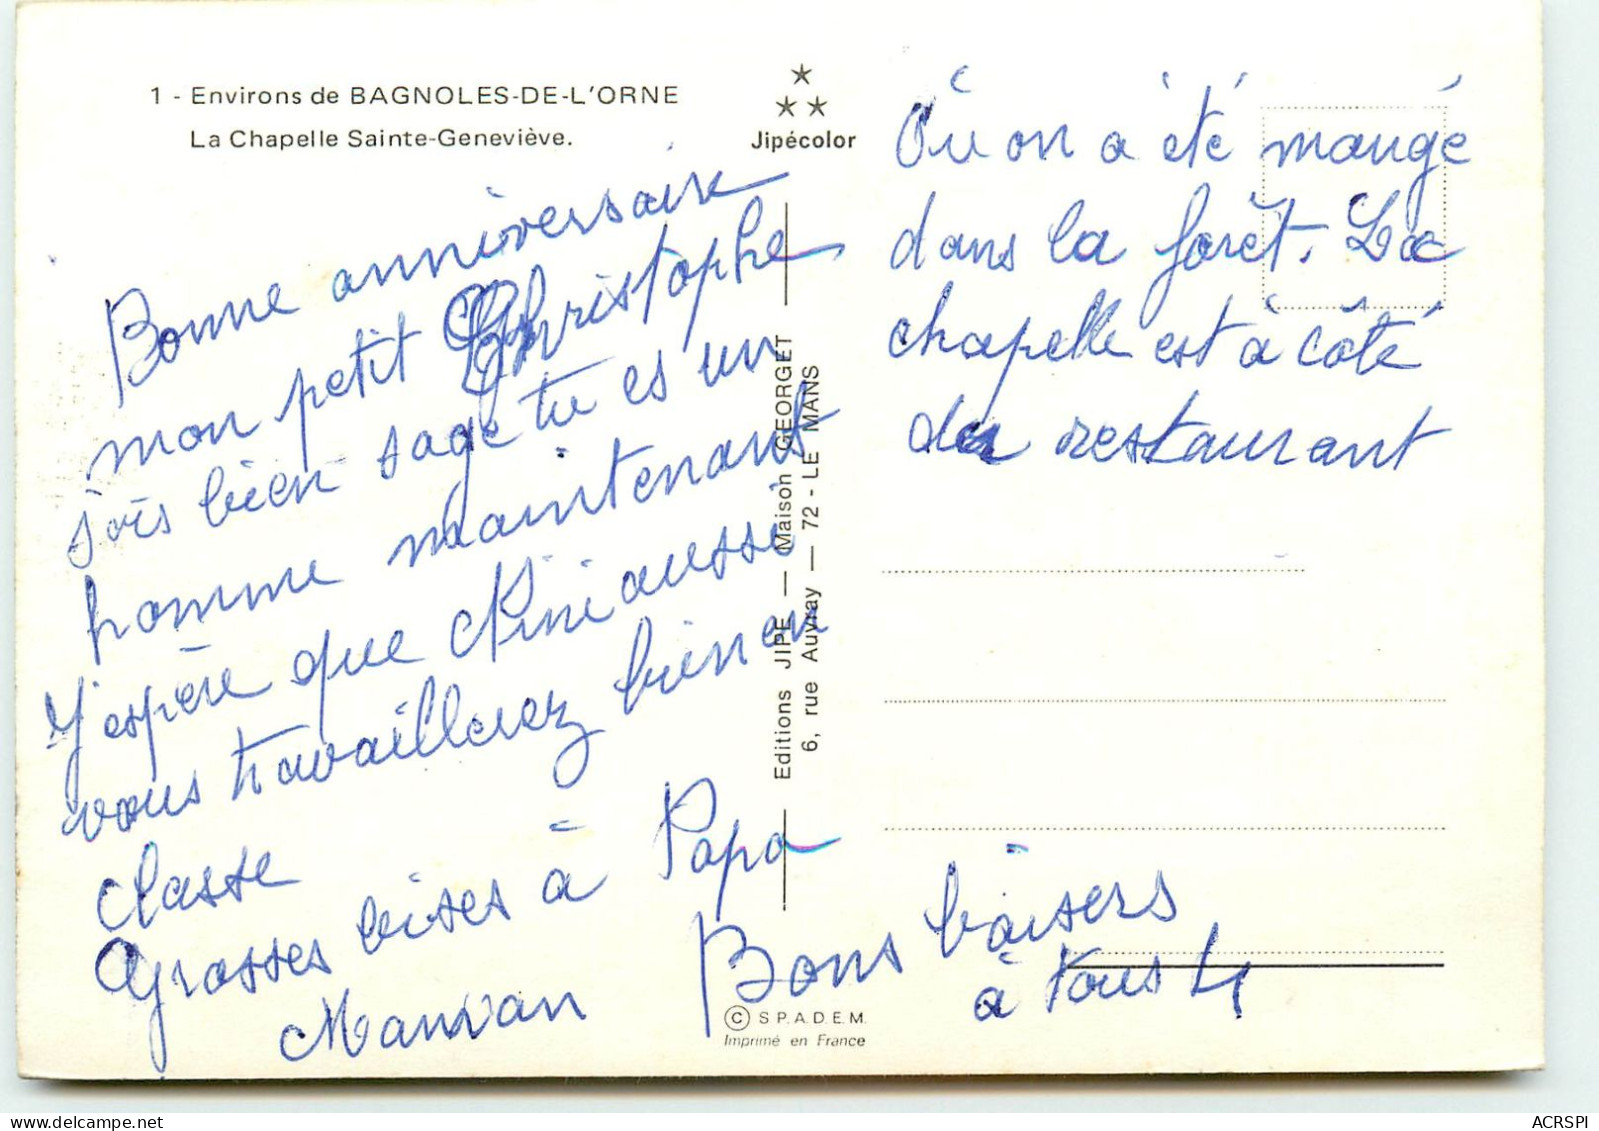 1 - Environs de BAGNOLES-DE-L'ORNE
La Chapelle Sainte-Geneviève.
Jipécolor
Bonne anniversaire
mon petit Christophe
sois bien sage tu es un
homme maintenant
J'espère que aussi
vous travaillerez bien en
classe
Grosses bises à Papa
Editions JIPE — Maison GEORGET
6, rue Auvray — 72 - LE MANS
Où on a été mangé
dans la forêt. La
chapelle est à côté
du restaurant
Bons baisers
à tous 4
© S.P.A.D.E.M.
Imprimé en France
ACRSPI